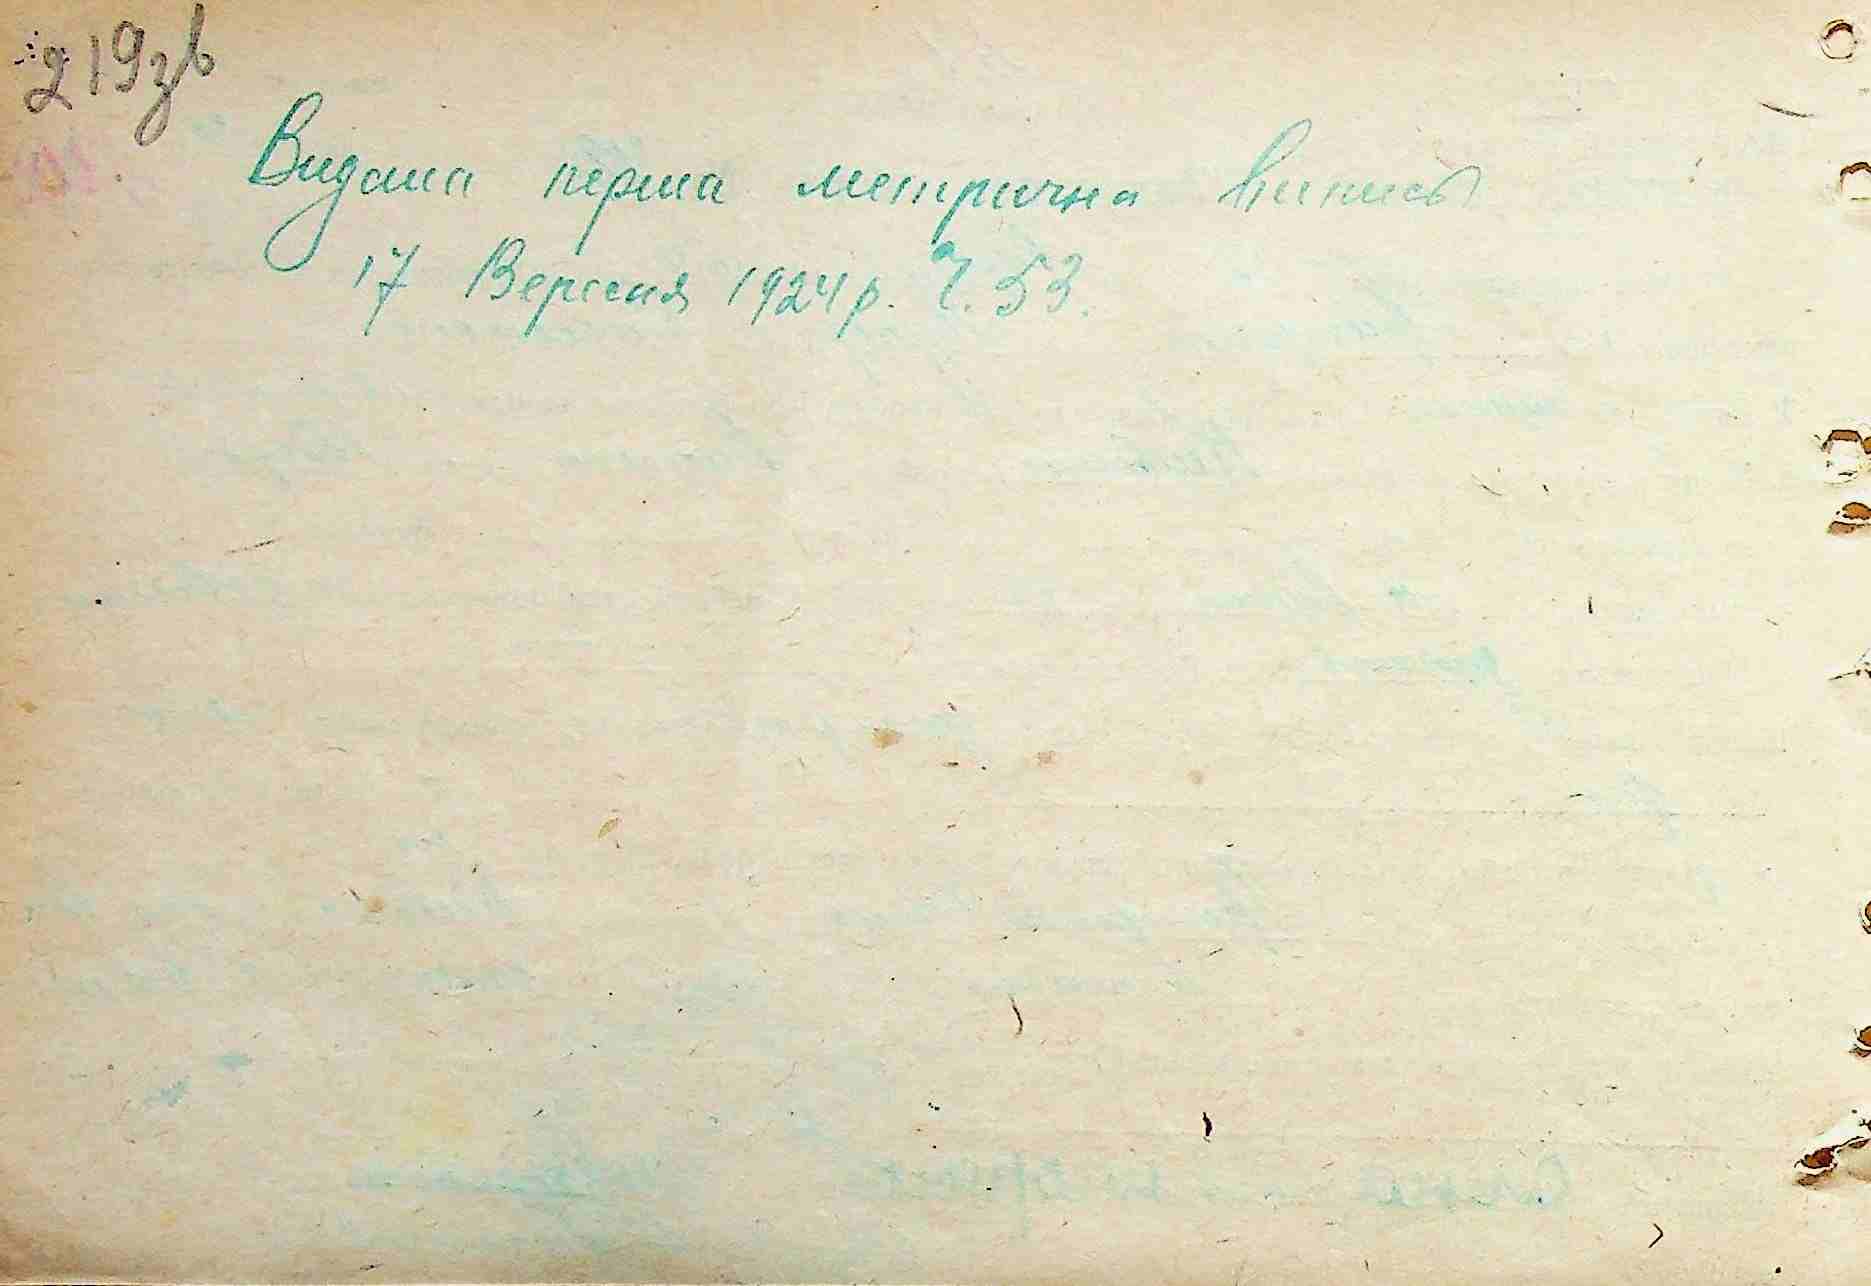 219зв
Видана перша метрична випись
17 Вересня 1924 р. Ч. 53.